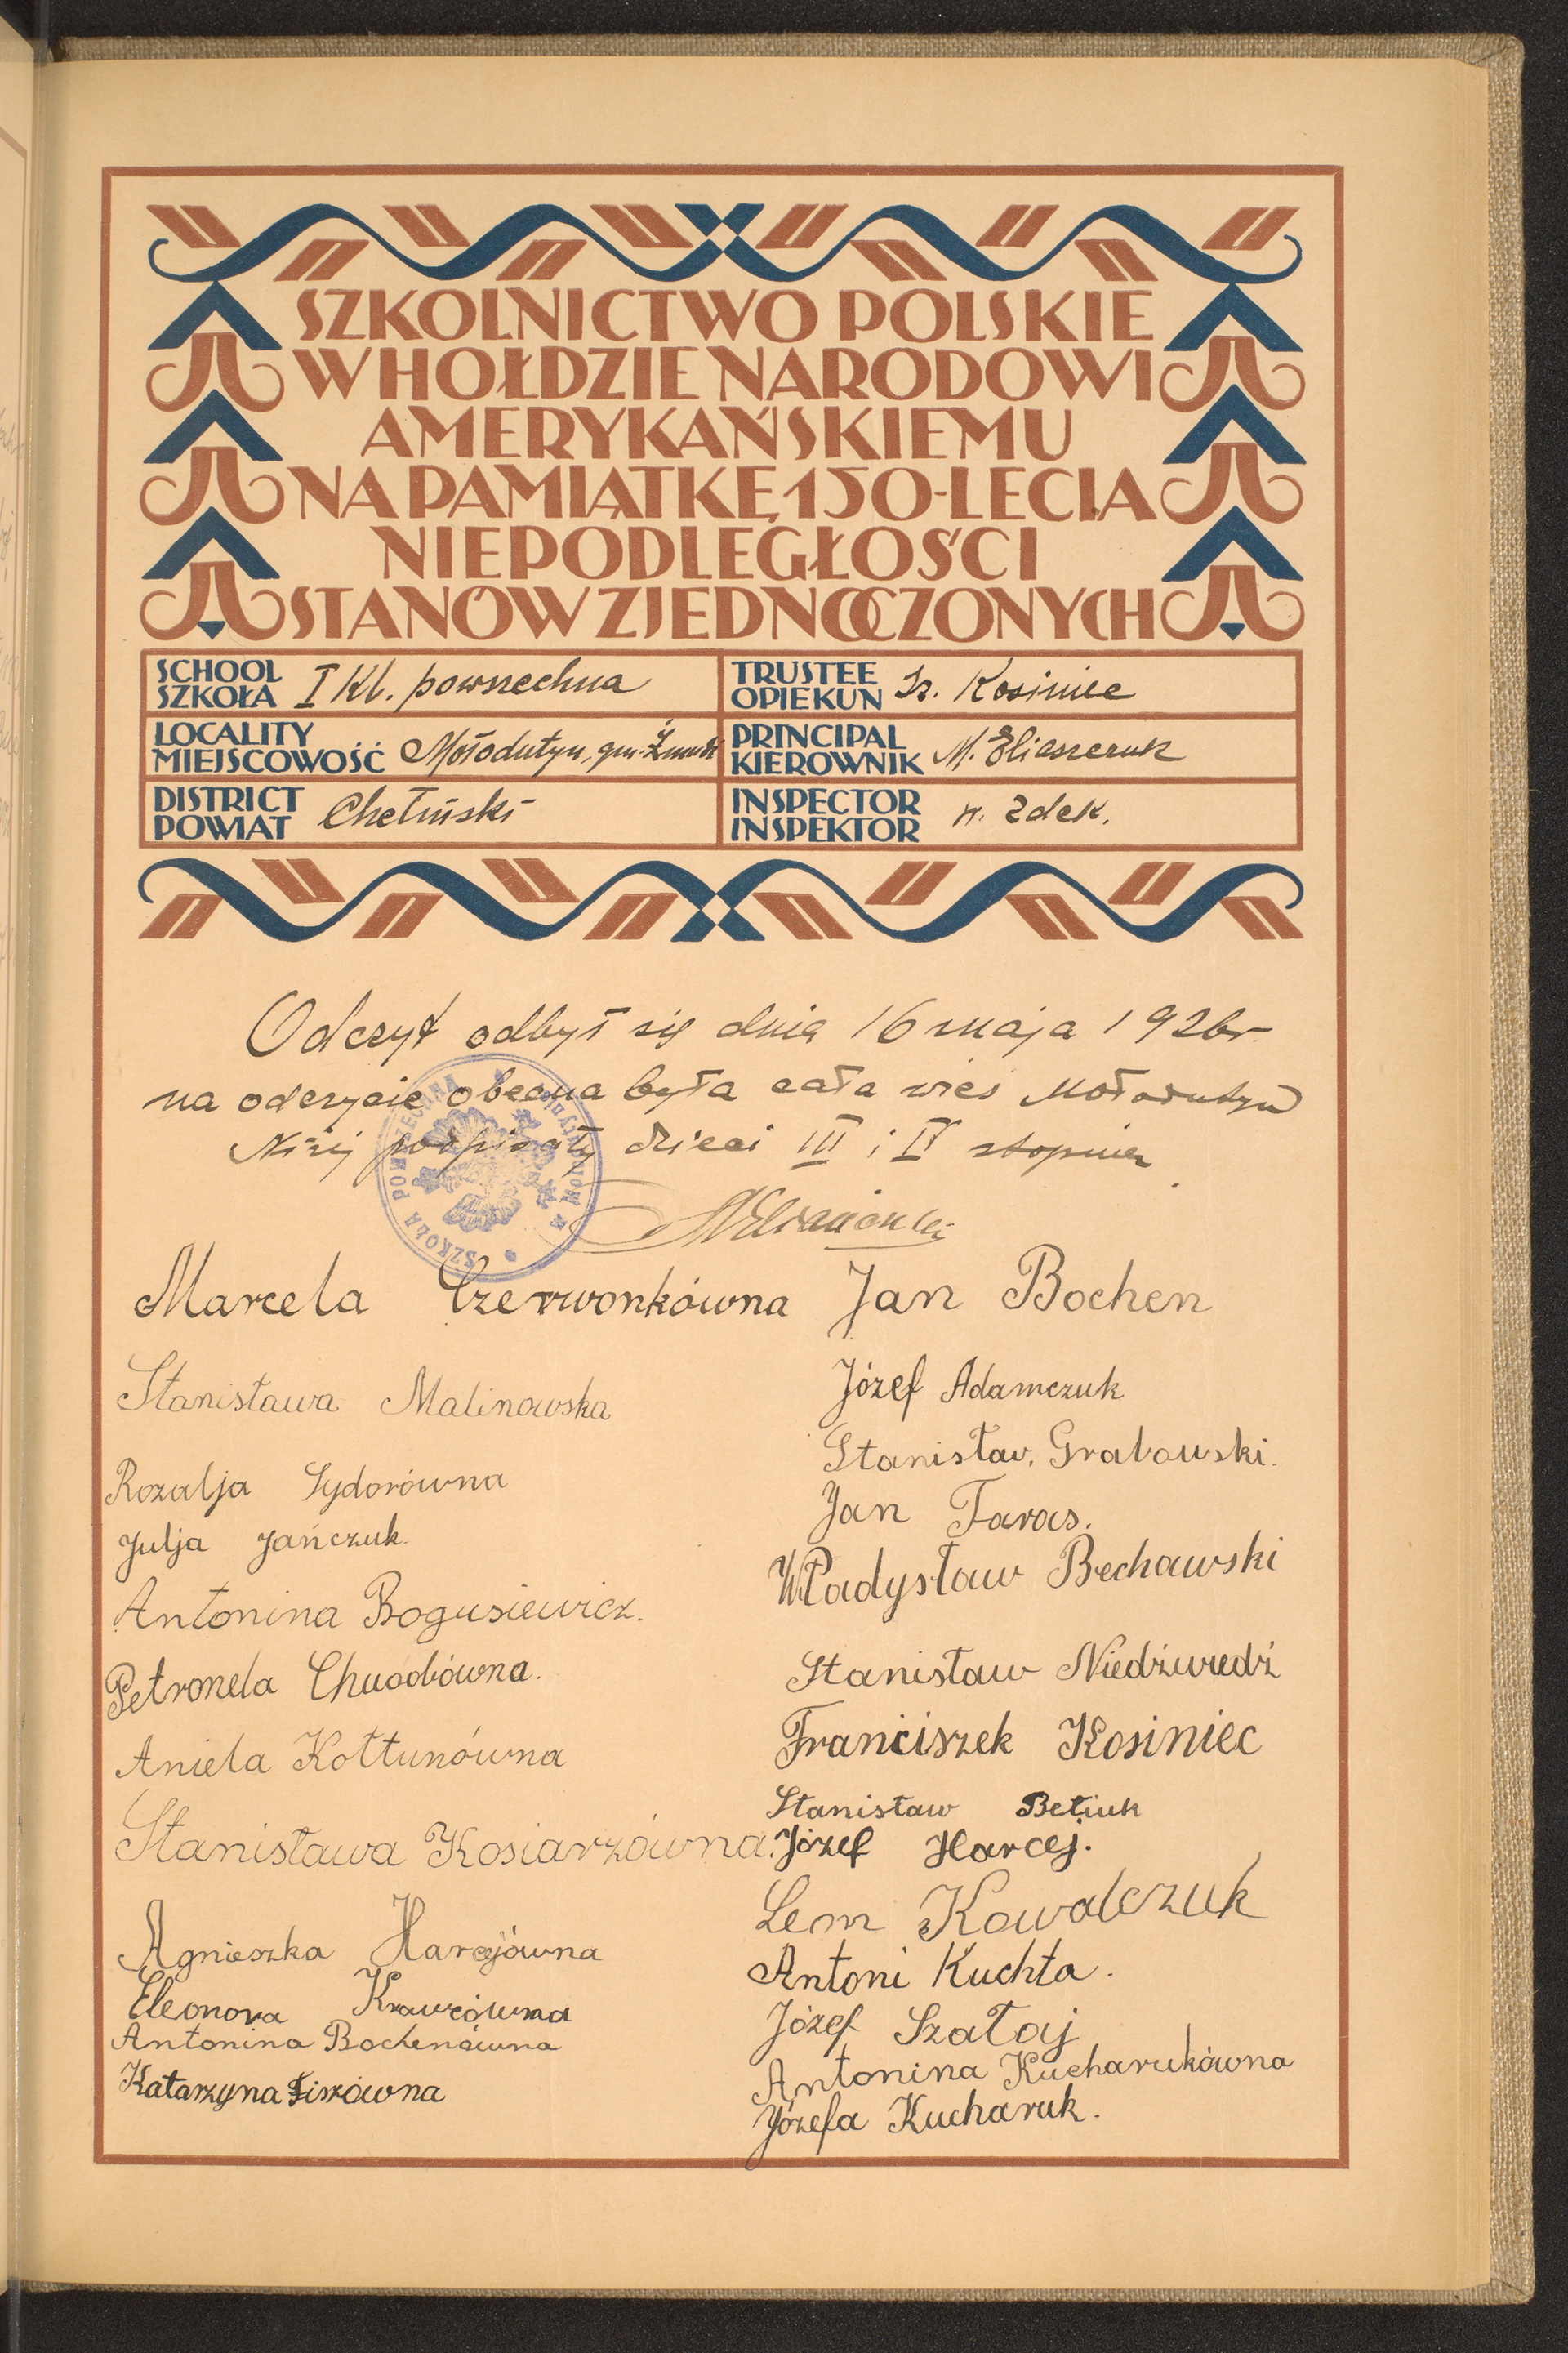 SZKOLNICTWO POLSKIE
W HOŁDZIE NARODOWI
AMERYKAŃSKIEMU
NA PAMIĄTKĘ 150-LECIA
NIEPODLEGŁOŚCI
STANÓW ZJEDNOCZONYCH
SCHOOL
SZKOŁA I Kl. powszechna
TRUSTEE
OPIEKUN Fr. Kosiniec
LOCALITY
MIEJSCOWOŚĆ Mołodutyn, gm. Żmudź
PRINCIPAL
KIEROWNIK M. Eliaszczuk
DISTRICT
POWIAT Chełmski
INSPECTOR
INSPEKTOR W. Zdek.
Odczyt odbył się dnia 16 maja 1926 r
na odczycie obecna była cała wieś Mołodutyn
Niżej podpisały dzieci III i IV stopnia
SZKOŁA POWSZECHNA
Marcela Czerwonkówna
Stanisława Malinowska
Rozalja Sydorówna
Julja Jańczuk.
Antonina Bogusiewicz.
Petronela
Aniela Kołtunówna
Stanisława Kosiarzówna.
Agnieszka Harcejówna
Eleonora Krawcówna
Antonina Bochenówna
Katarzyna
Jan Bochen
Józef Adamczuk
Stanisław. Grabowski.
Jan Taras.
Władysław Bechawski
Stanisław Niedźwiedź
Franciszek Kosiniec
Stanisław Betiuk
Józef Harcej.
Lem Kowalczuk
Antoni Kuchta.
Józef Szałaj
Antonina Kucharukówna
Józefa Kucharuk.